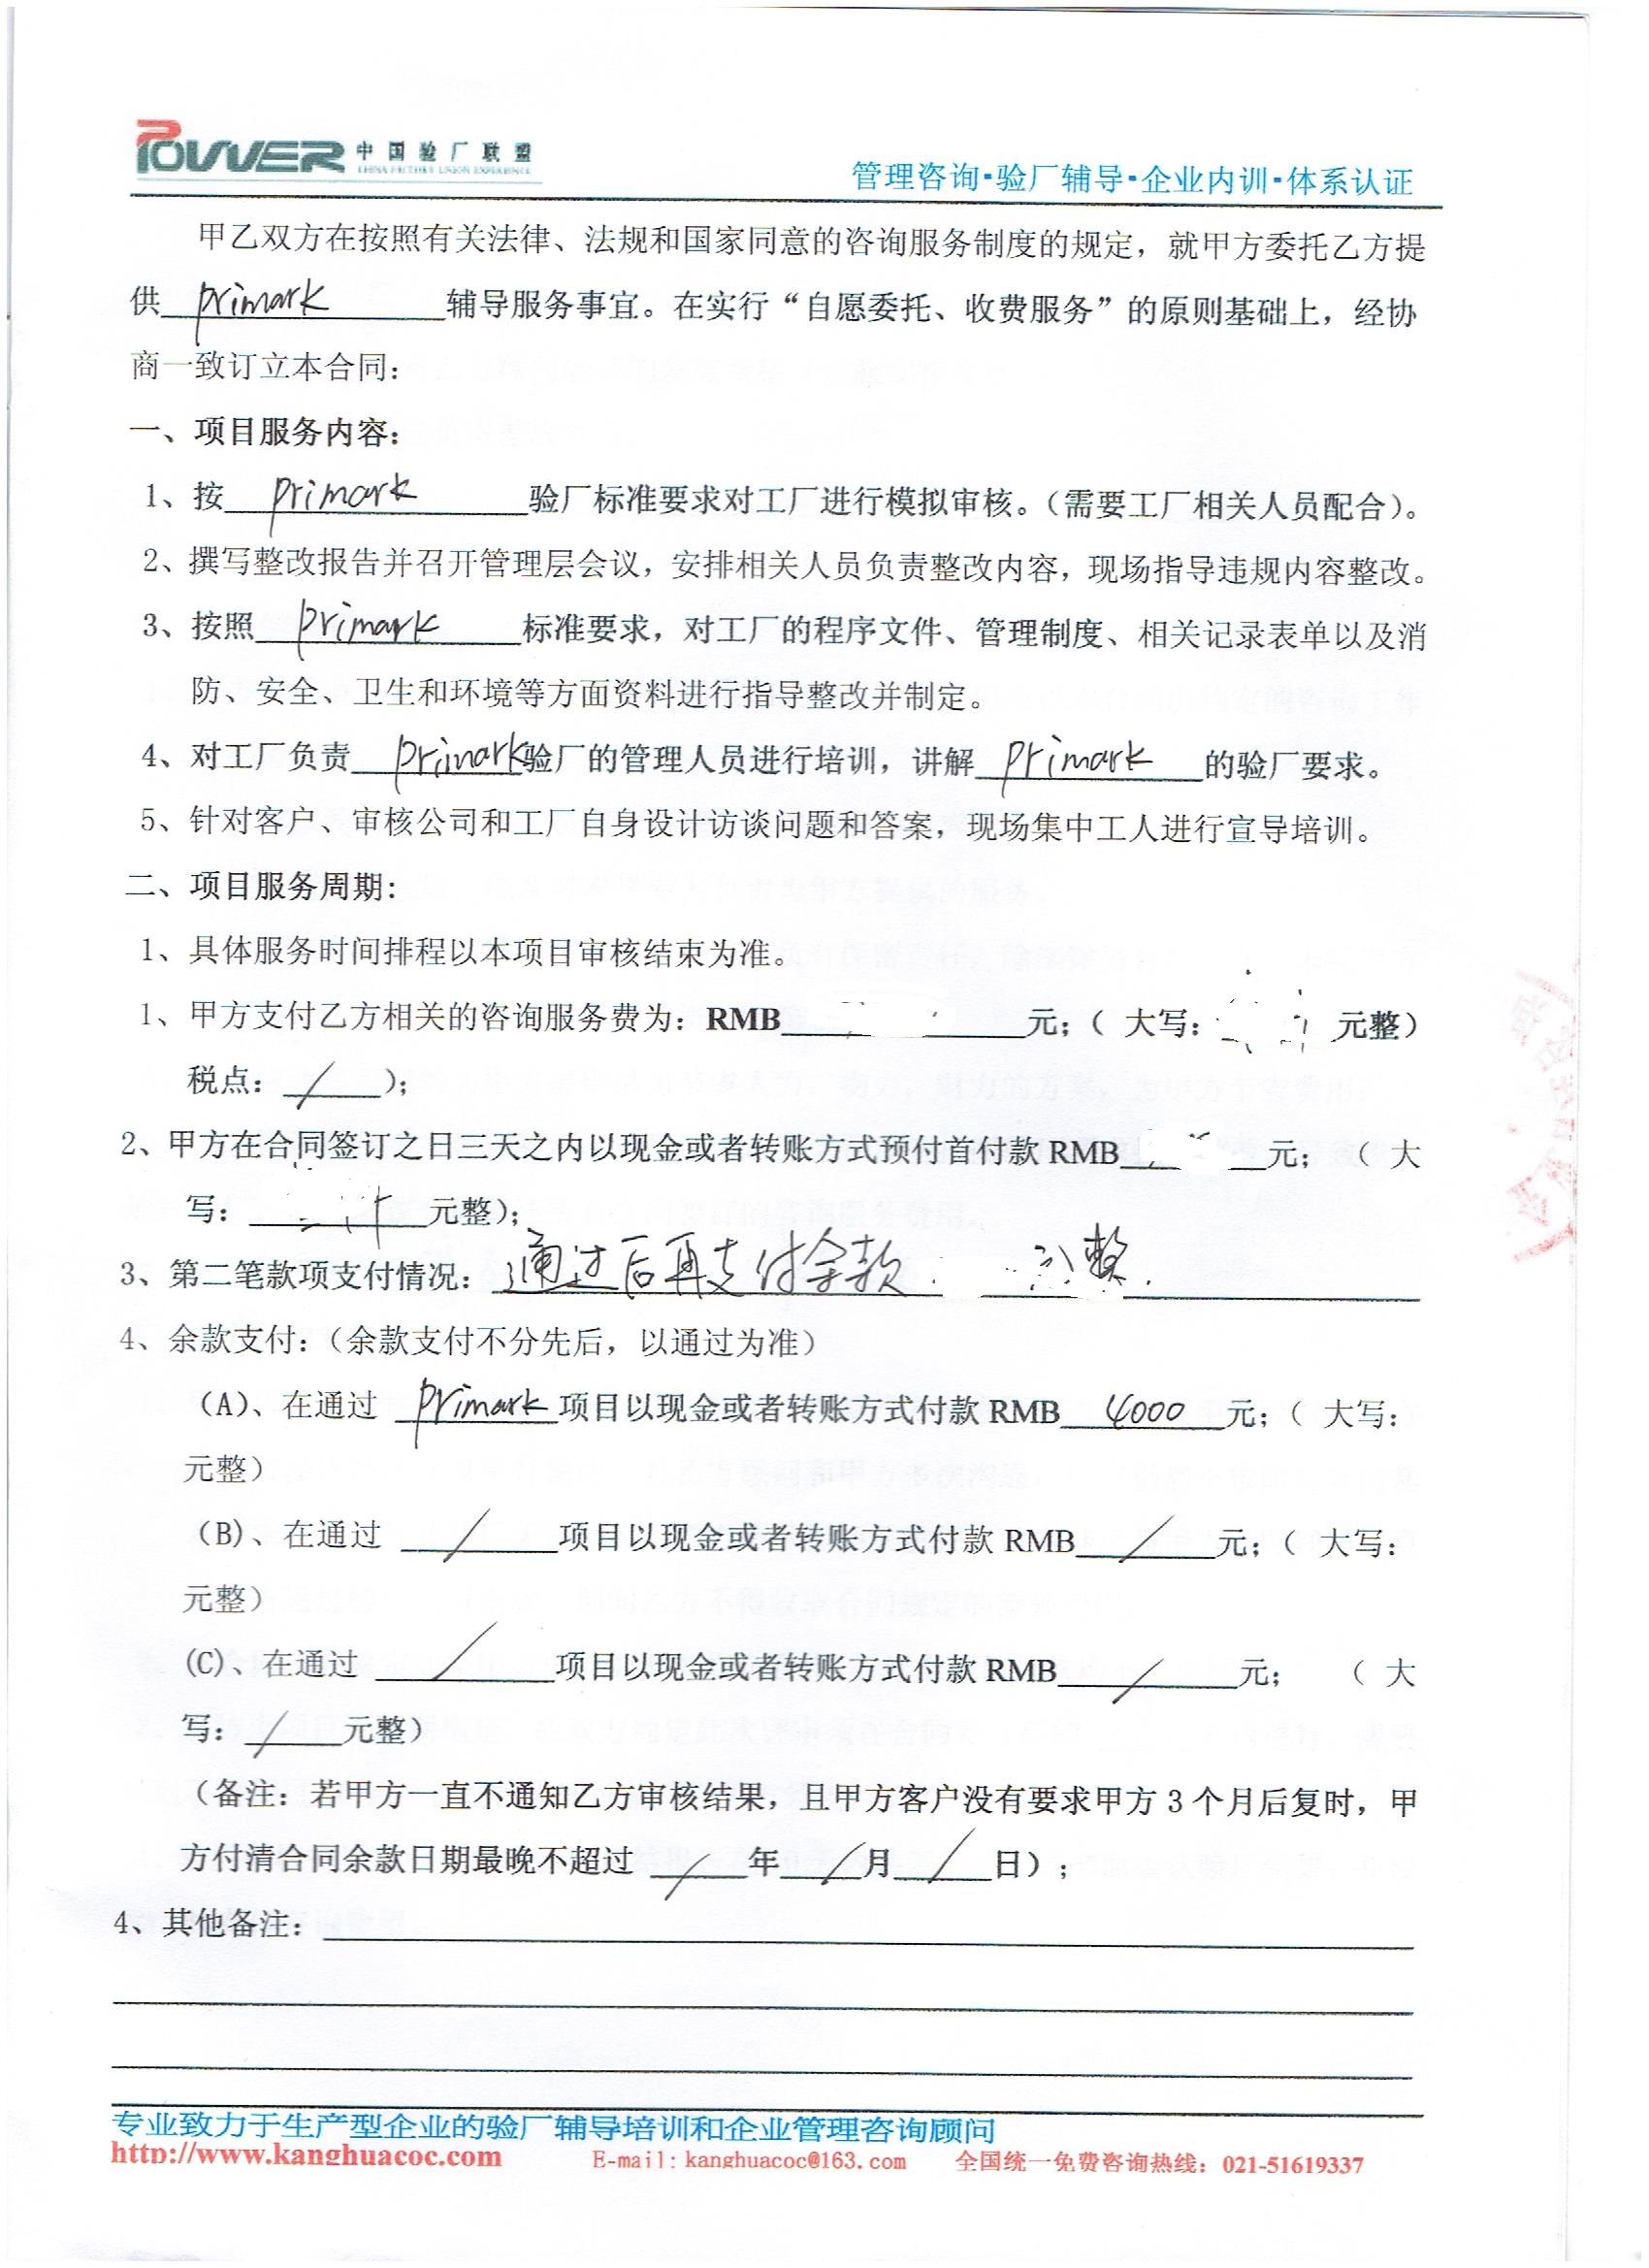 POWER 中国验厂联盟
CHINA FACTORY UNION EXPERIENCE
管理咨询·验厂辅导·企业内训·体系认证
甲乙双方在按照有关法律、法规和国家同意的咨询服务制度的规定，就甲方委托乙方提
供 primark 辅导服务事宜。在实行“自愿委托、收费服务”的原则基础上，经协
商一致订立本合同：
一、项目服务内容：
1、按 primark 验厂标准要求对工厂进行模拟审核。（需要工厂相关人员配合）。
2、撰写整改报告并召开管理层会议，安排相关人员负责整改内容，现场指导违规内容整改。
3、按照 primark 标准要求，对工厂的程序文件、管理制度、相关记录表单以及消
防、安全、卫生和环境等方面资料进行指导整改并制定。
4、对工厂负责 primark 验厂的管理人员进行培训，讲解 primark 的验厂要求。
5、针对客户、审核公司和工厂自身设计访谈问题和答案，现场集中工人进行宣导培训。
二、项目服务周期：
1、具体服务时间排程以本项目审核结束为准。
1、甲方支付乙方相关的咨询服务费为：RMB 元；（ 大写： 元整）
税点： / ）；
2、甲方在合同签订之日三天之内以现金或者转账方式预付首付款 RMB 元； （ 大
写： 元整）；
3、第二笔款项支付情况： 通过后再支付余款. 整.
4、余款支付：（余款支付不分先后，以通过为准）
（A）、在通过 primark 项目以现金或者转账方式付款 RMB 4000 元；（ 大写：
元整）
（B）、在通过 / 项目以现金或者转账方式付款 RMB / 元；（ 大写：
元整）
(C)、在通过 / 项目以现金或者转账方式付款 RMB / 元； （ 大
写： / 元整）
（备注：若甲方一直不通知乙方审核结果，且甲方客户没有要求甲方 3 个月后复时，甲
方付清合同余款日期最晚不超过 / 年 / 月 / 日）；
4、其他备注：
专业致力于生产型企业的验厂辅导培训和企业管理咨询顾问
http://www.kanghuacoc.com E-mail: kanghuacoc@163.com 全国统一免费咨询热线：021-51619337